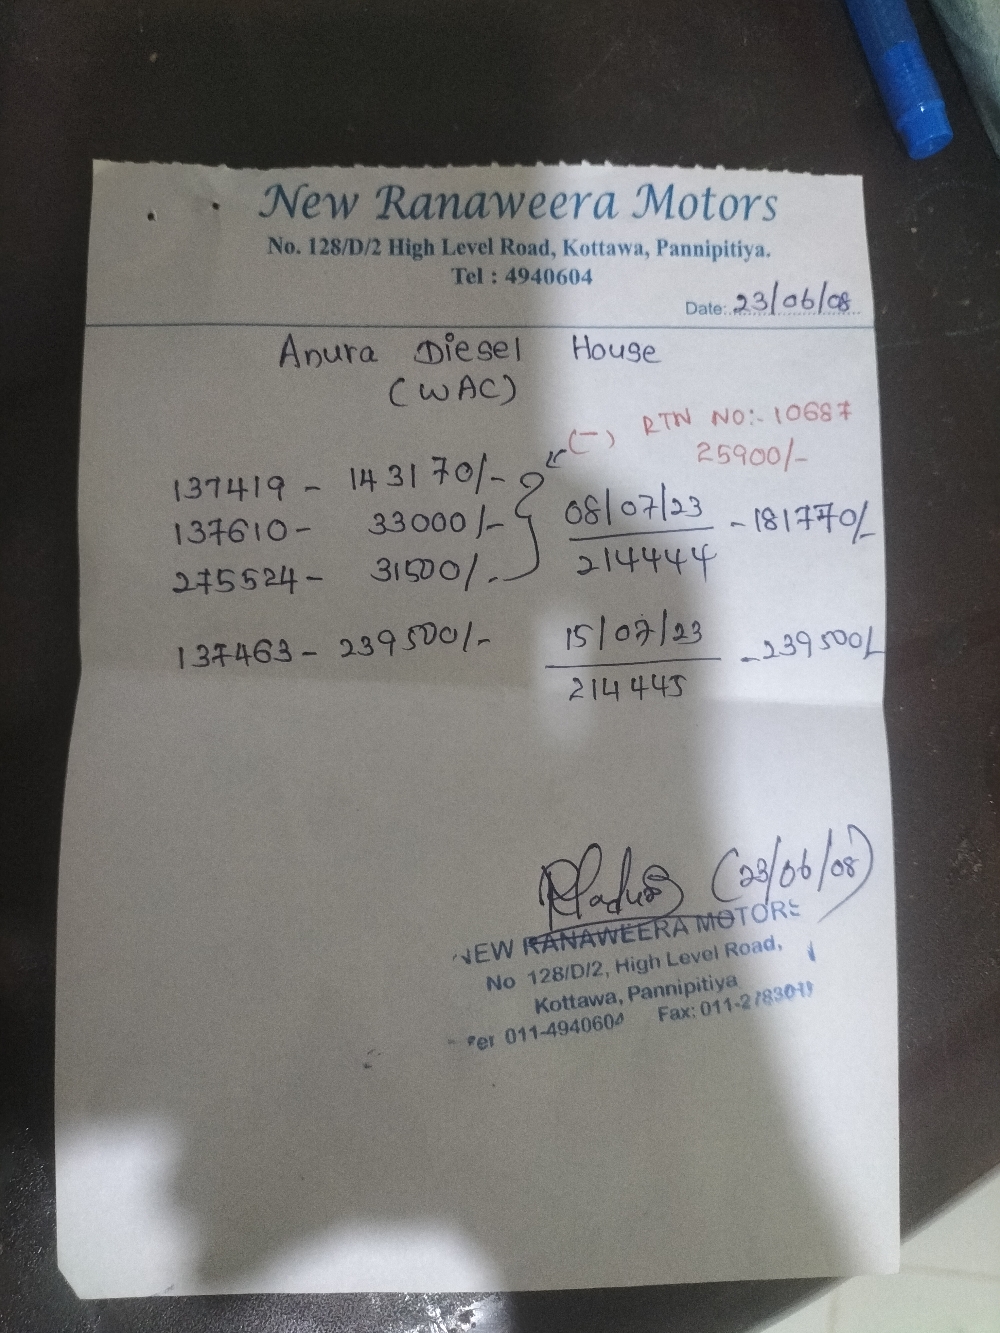 New Ranaweera Motors
No. 128/D/2 High Level Road, Kottawa, Pannipitiya.
Tel : 4940604
Date: 23/06/08
Anura Diesel House
(WAC)
(-) RTN NO:- 10687
25900/-
137419 - 143170/-
137610 - 33000/-
275524 - 31500/-
08/07/23 - 181770/-
214444
137463 - 239500/-
15/07/23 - 239500/-
214445
(23/06/08)
NEW RANAWEERA MOTORS
No 128/D/2, High Level Road,
Kottawa, Pannipitiya
Tel 011-4940604 Fax: 011-2783011